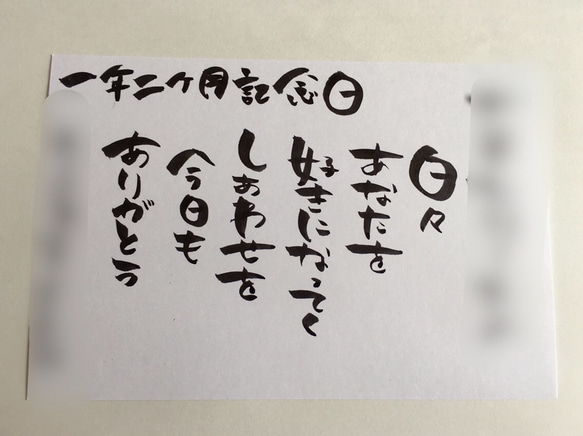 一年二ケ月記念日
日々
あなたを
好きになってく
しあわせを
今日も
ありがとう